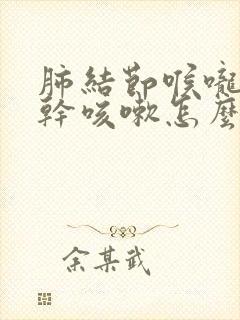 肺結節喉嚨
幹咳嗽怎麼
余某武